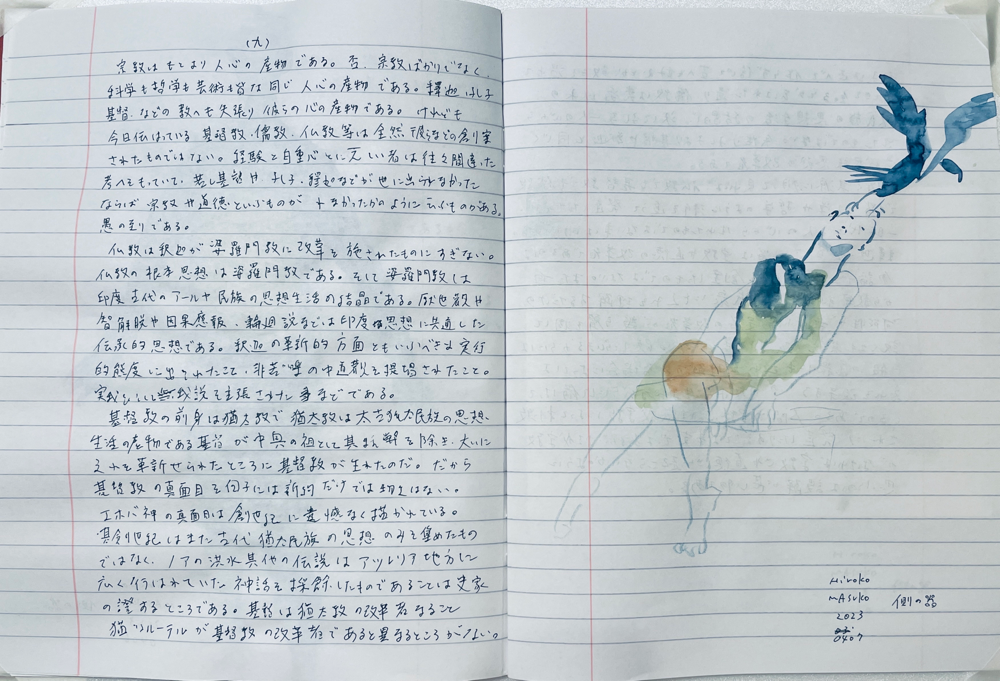 (九)
宗教はもとより人心の産物である。否、宗教ばかりでなく、
科学も哲学も芸術も皆な同じ人心の産物である。釋迦、孔子
基督などの教へも矢張り彼らの心の産物である。けれども
今日伝はっている基督教、儒教、仏教等は全然彼らなどの創り出
されたものではない。経験と自重心とに乏しい者は往々間違った
考へをもっていて、若し基督や孔子、釋迦などが世に出られなかった
ならば宗教や道徳といふものがなかったかのように云ふものがある。
愚の至りである。
仏教は釈迦が婆羅門教に改革を施されたものにすぎない。
仏教の根本思想は婆羅門教である。そして婆羅門教は
印度古代のアールヤ民族の思想生活の結晶である。厭世欲や
智解脱や因果應報、輪廻説などは印度思想に共通した
伝承的思想である。釈迦の革新的方面ともいふべきは実行
的態度に出でられたこと、非苦非楽の中道教を提唱されたこと。
無我説を主張された事などである。
基督教の前身は猶太教で猶太教は太古猶太民族の思想、
生活の産物である基督が中興の祖として其弊を除き、大いに
之れを革新せられたところに基督教が生れたのだ。だから
基督教の真面目を伺ふには新約だけでは切えはない。
エホバ神の真面目は創世記に遺憾なく描かれている。
其創世記はまた古代猶太民族の思想のみを集めたもの
ではなく、ノアの洪水其他の伝説はアッシリア地方に
広く行はれていた神話を採録したものであることは史家
の證するところである。基督は猶太教の改革者なること
猶ほルーテルが基督教の改革者であると異なるところがない。
Hiroko
MASUKO
2023
0407
側の器